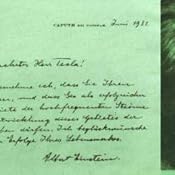 CAPUTH Juni 1931.
Herr Tesla!
ich, dass Sie Ihren
und dass Sie als erfolgreicher
der hochfrequenten Ströme
Entwicklung dieses Gebietes der
dürfen. Ich beglückwünsche
Erfolge Ihres Lebenswerkes.
Albert Einstein.